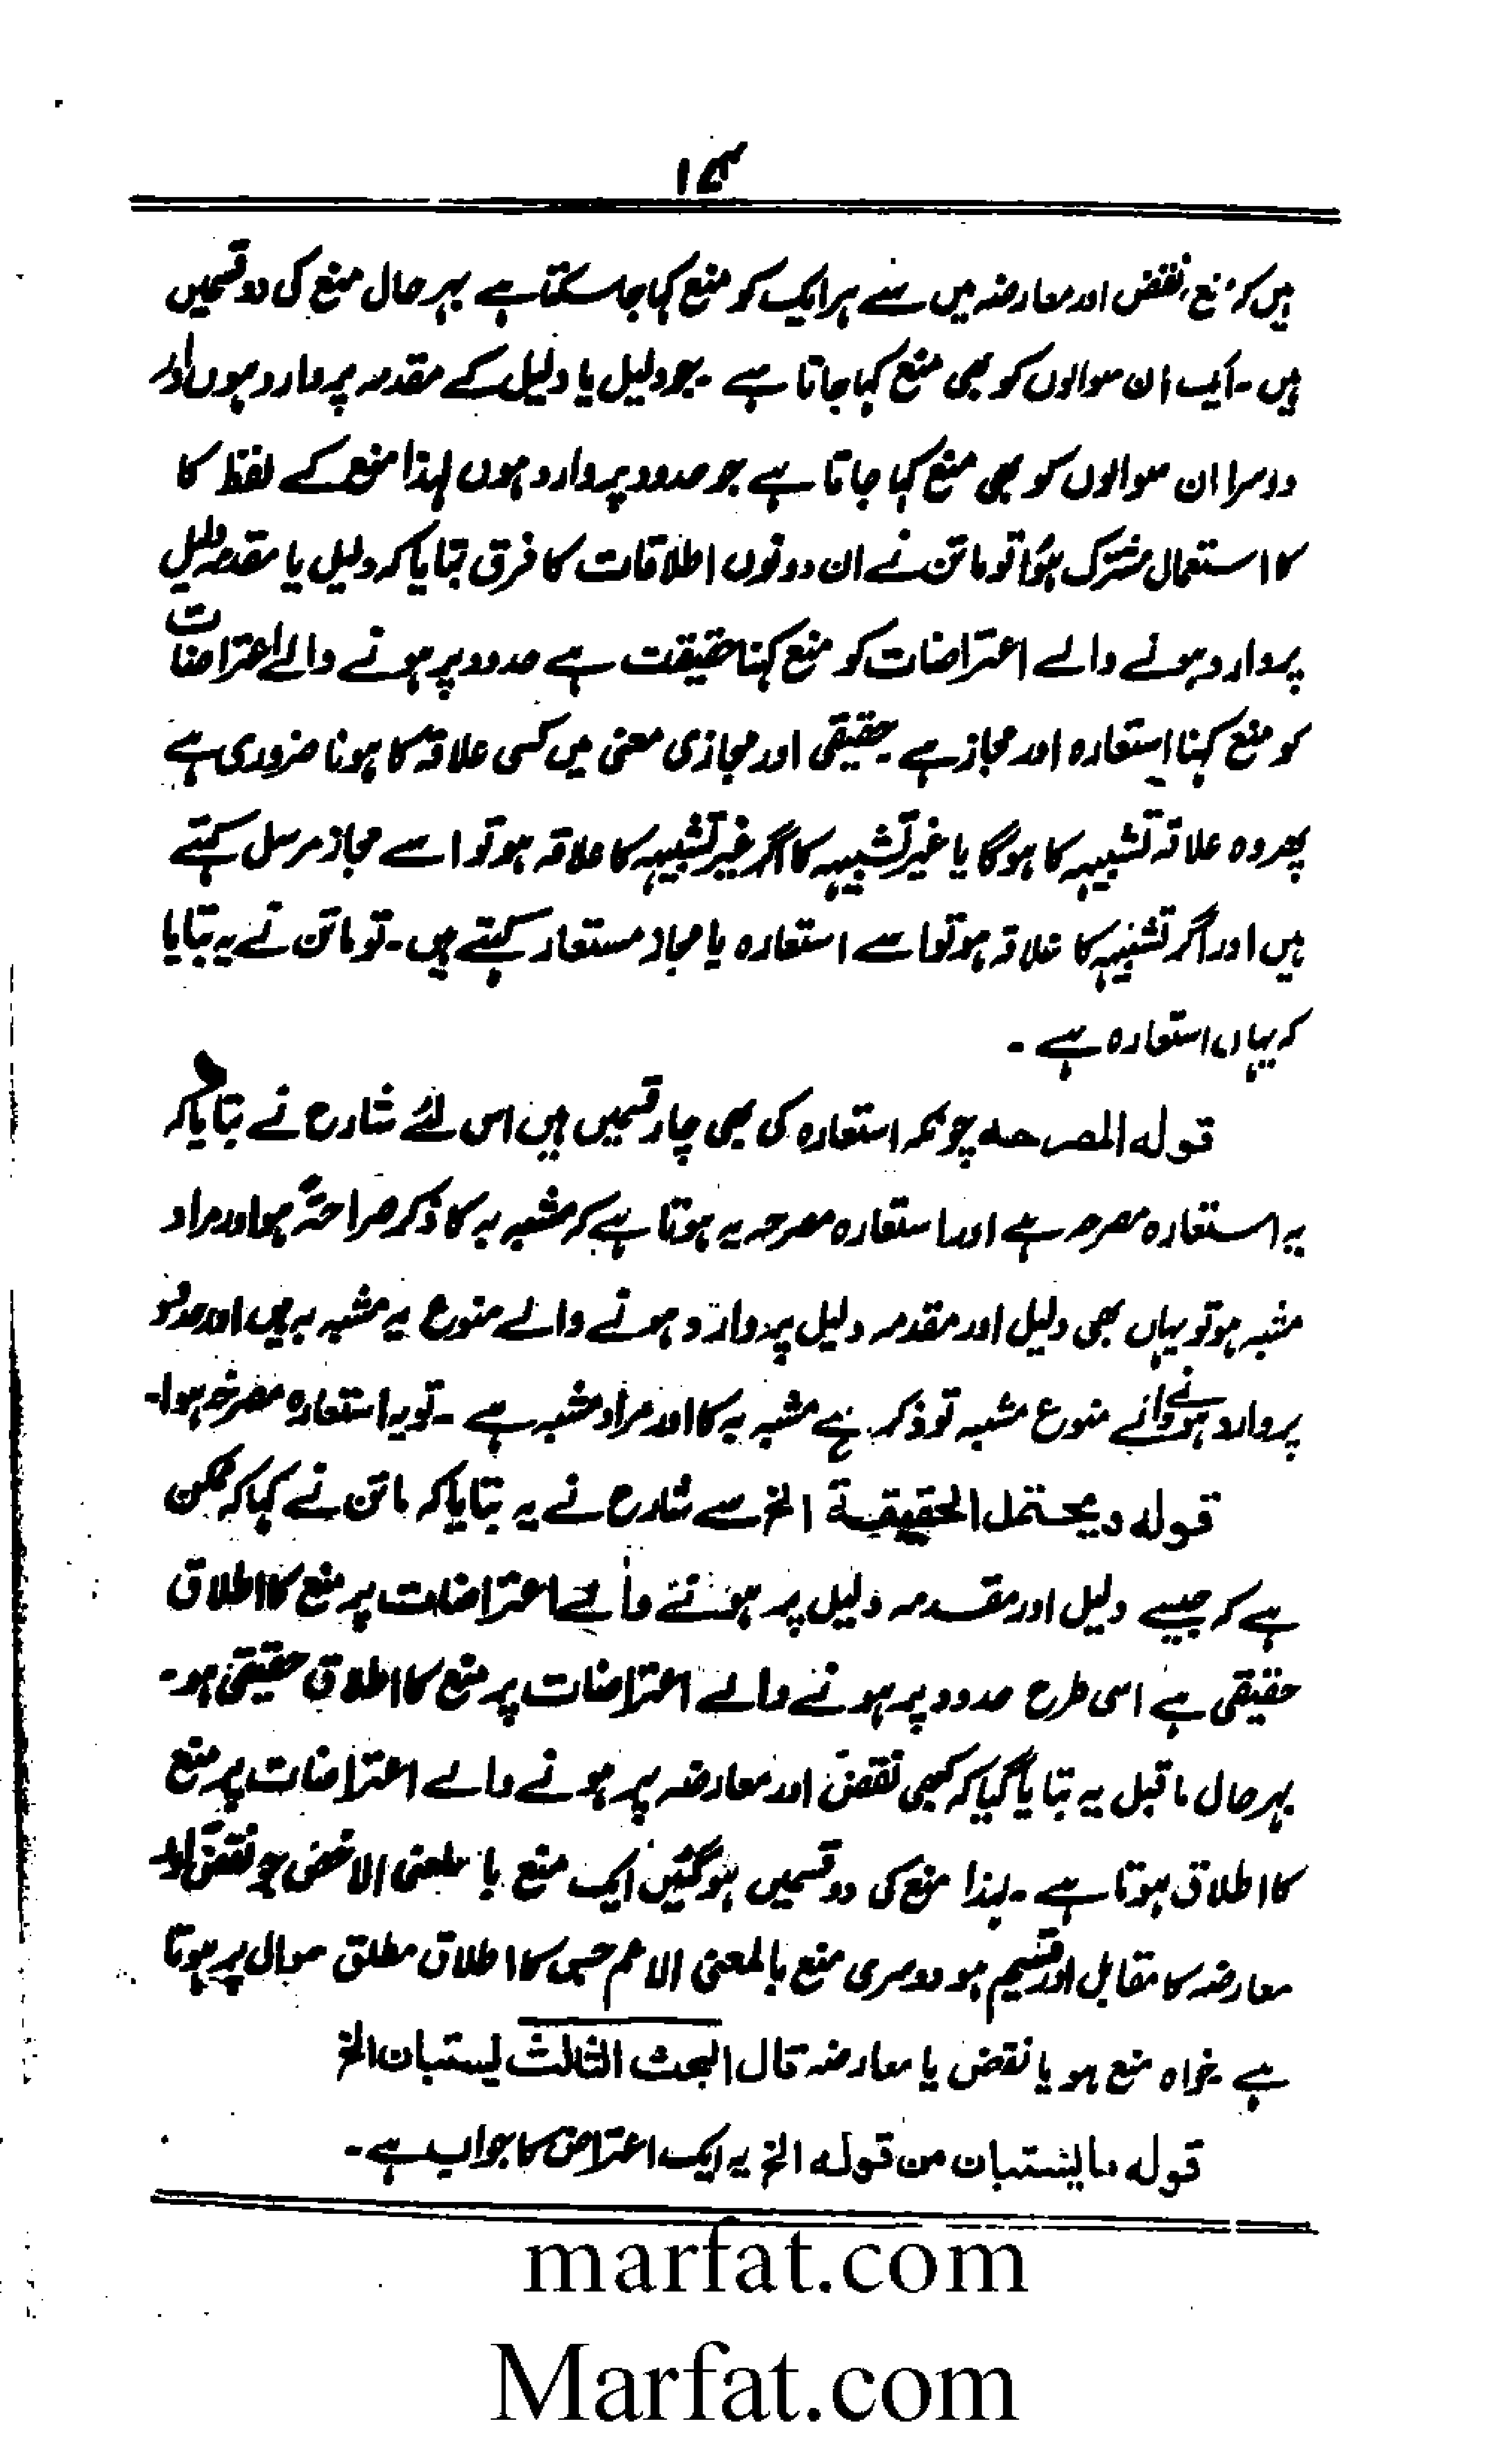 ۱۵۴
ہیں کہ منع، نقض اور معارضہ میں سے ہر ایک کو منع کہا جا سکتا ہے بہر حال منع کی دو قسمیں
ہیں۔ ایک ان سوالوں کو بھی منع کہا جاتا ہے۔ جو دلیل یا دلیل کے مقدمہ پر وارد ہوں اور
دوسرا ان سوالوں کو بھی منع کہا جاتا ہے جو حدود پر وارد ہوں لہذا منع کے لفظ کا
کا استعمال مشترک ہوا تو ماتن نے ان دونوں اطلاقات کا فرق بتایا کہ دلیل یا مقدمہ دلیل
پر وارد ہونے والے اعتراضات کو منع کہنا حقیقت ہے حدود پر ہونے والے اعتراضات
کو منع کہنا استعارہ اور مجاز ہے حقیقی اور مجازی معنی میں کسی علاقہ کا ہونا ضروری ہے
پھر وہ علاقہ تشبیہہ کا ہوگا یا غیر تشبیہہ کا اگر غیر تشبیہہ کا علاقہ ہو تو اسے مجاز مرسل کہتے
ہیں اور اگر تشبیہہ کا علاقہ ہو تو اسے استعارہ یا مجاز مستعار کہتے ہیں۔ تو ماتن نے یہ بتایا
کہ یہاں استعارہ ہے۔
قولہ المصرحہ چونکہ استعارہ کی بھی چار قسمیں ہیں اس لئے شارح نے بتایا کہ
یہ استعارہ مصرحہ ہے اور استعارہ مصرحہ یہ ہوتا ہے کہ مشبہ بہ کا ذکر صراحۃً ہو اور مراد
مشبہ ہو تو یہاں بھی دلیل اور مقدمہ دلیل پر وارد ہونے والے منوع یہ مشبہ بہ ہیں اور حدود
پر وارد ہونے والے منوع مشبہ تو ذکر ہے مشبہ بہ کا اور مراد مشبہ ہے۔ تو یہ استعارہ مصرحہ ہوا۔
قولہ ویحتمل الحقیقیة الخ سے شارح نے یہ بتایا کہ ماتن نے کہا کہ ممکن
ہے کہ جیسے دلیل اور مقدمہ دلیل پر ہونے والے اعتراضات پر منع کا اطلاق
حقیقی ہے اسی طرح حدود پر ہونے والے اعتراضات پر منع کا اطلاق حقیقی ہو۔
بہر حال ماقبل یہ بتایا گیا کہ کبھی نقض اور معارضہ پر ہونے والے اعتراضات پر منع
کا اطلاق ہوتا ہے۔ لہذا منع کی دو قسمیں ہو گئیں ایک منع بالمعنی الاخص جو نقض اور
معارضہ کا مقابل اور قسیم ہو دوسری منع بالمعنی الاعم جس کا اطلاق مطلق سوال پر ہوتا
ہے خواہ منع ہو یا نقض یا معارضہ قال البحث الثالث لیستبان الخ
قولہ ما یستبان من قولہ الخ یہ ایک اعتراض کا جواب ہے۔
marfat.com
Marfat.com